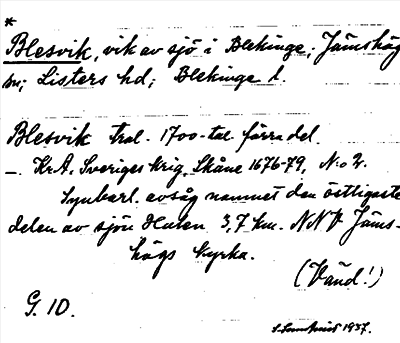 *
Blesvik, vik av sjö i Blekinge; Jämshög
sn; Listers hd; Blekinge l.
Blesvik trol. 1700-tal. förra del.
–. Kr.A. Sveriges krig, Skåne 1676-79, N:o 2.
Synbarl. avsåg namnet den östligaste
delen av sjön Halen 3,7 km. NNV Jäms-
högs kyrka.
(Vänd!)
G. 10.
1937.